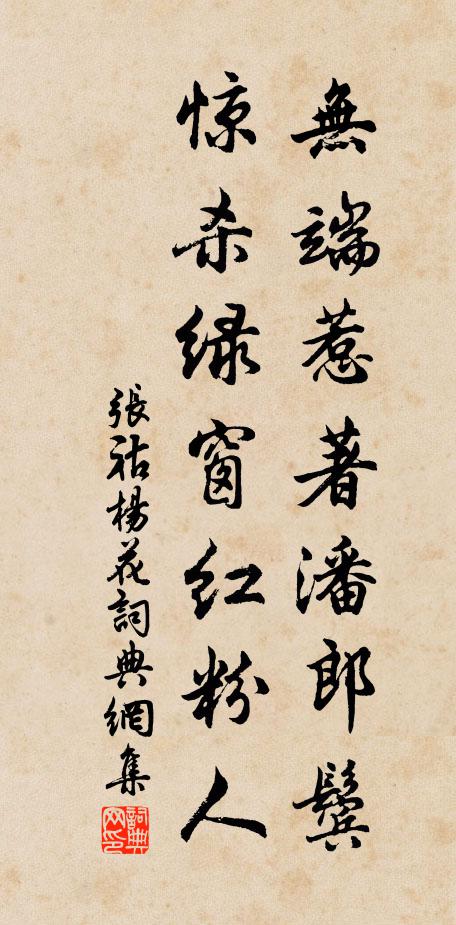 無端惹著潘郎鬂
惊杀绿窗红粉人
張祜楊花詞典網集
詞典网印